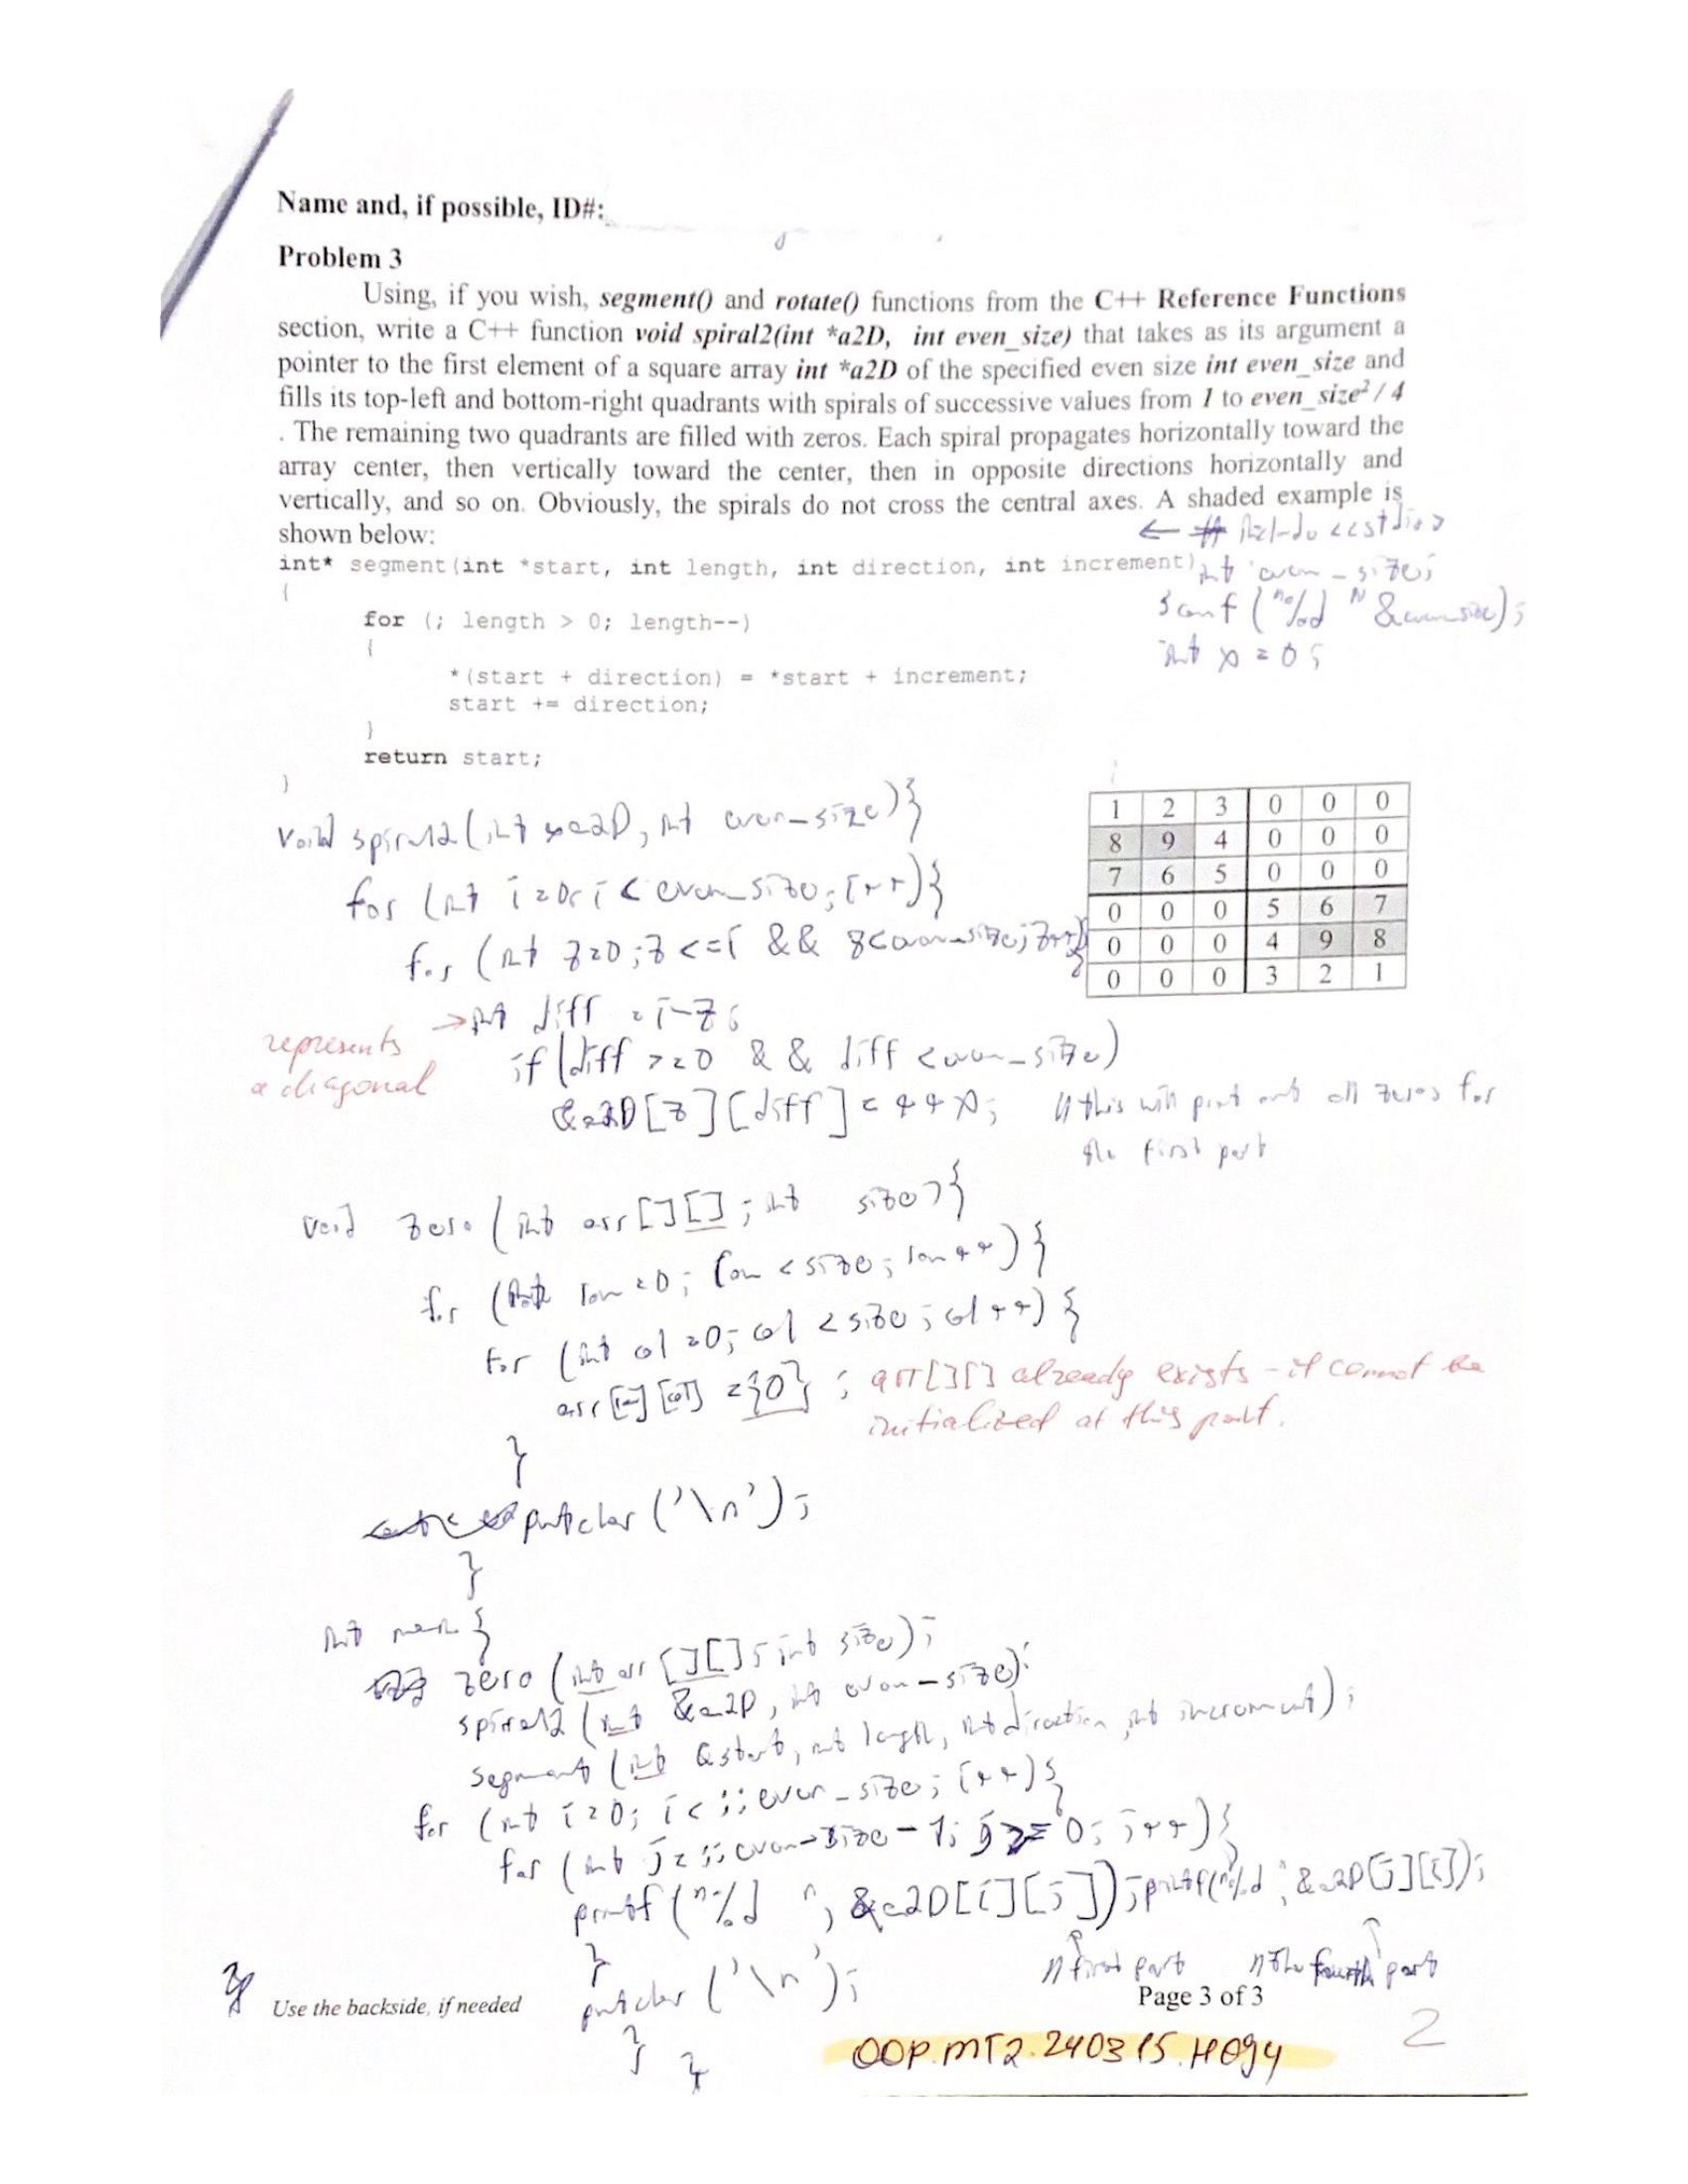 Name and, if possible, ID#:
Problem 3
Using, if you wish, segment() and rotate() functions from the C++ Reference Functions
section, write a C++ function void spiral2(int *a2D, int even_size) that takes as its argument a
pointer to the first element of a square array int *a2D of the specified even size int even_size and
fills its top-left and bottom-right quadrants with spirals of successive values from 1 to even_size² / 4
. The remaining two quadrants are filled with zeros. Each spiral propagates horizontally toward the
array center, then vertically toward the center, then in opposite directions horizontally and
vertically, and so on. Obviously, the spirals do not cross the central axes. A shaded example is
shown below:
← # <cstdio>
int* segment(int *start, int length, int direction, int increment)
int even_size;
{
scanf("%d" &evensize);
for (; length > 0; length--)
{
int x = 0;
*(start + direction) = *start + increment;
start += direction;
}
return start;
}
1 2 3 0 0 0
8 9 4 0 0 0
7 6 5 0 0 0
0 0 0 5 6 7
0 0 0 4 9 8
0 0 0 3 2 1
void spiral2(int *a2D, int even_size){
for (int i=0; i < even_size; i++){
for (int z=0; z <= i && z<even_size; z++){
→ int diff = i-z;
represents
a diagonal
if (diff >=0 && diff < even_size)
&a2D[z][diff] = ++x; // this will print out all zeros for
the first part
void zero (int arr[][]; int size){
for (int row=0; row < size; row++){
for (int col=0; col < size; col++){
arr[row][col] ={0}; arr[][] already exists - it cannot be
initialized at this point.
}
putchar('\n');
}
int main {
zero (int arr[][]; int size);
spiral2 (int &a2D, int even_size);
segment (int &start, int length, int direction, int increment);
for (int i=0; i< ;; even_size; i++){
for (int j= ;; even_size - 1; j >= 0; j++){
printf("%d ", &a2D[i][j]); printf("%d", &a2D[j][i]);
}
// first part // the fourth part
putchar('\n');
}
}
Use the backside, if needed
Page 3 of 3
2
OOP.MT2.240315.H094